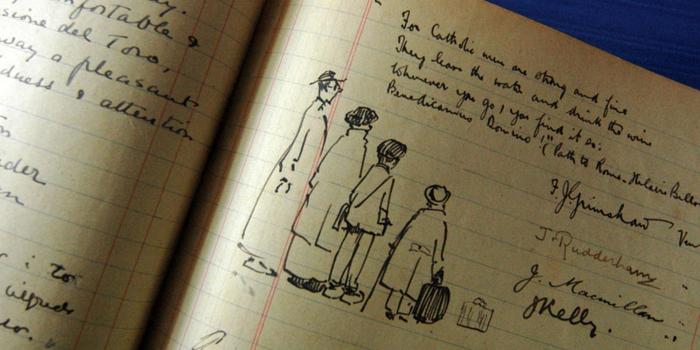 comfortable &
sione del Toro,
way a pleasant
kindness & attention
For Catholic men are strong and fine
They leave the water and drink the wine
Whenever you go, you find it so:
Benedicamus Domino" (Path to Rome. Hilaire Bello
F.J. Grimshaw
J. Rudderham
J. Macmillan "
J Kelly. "